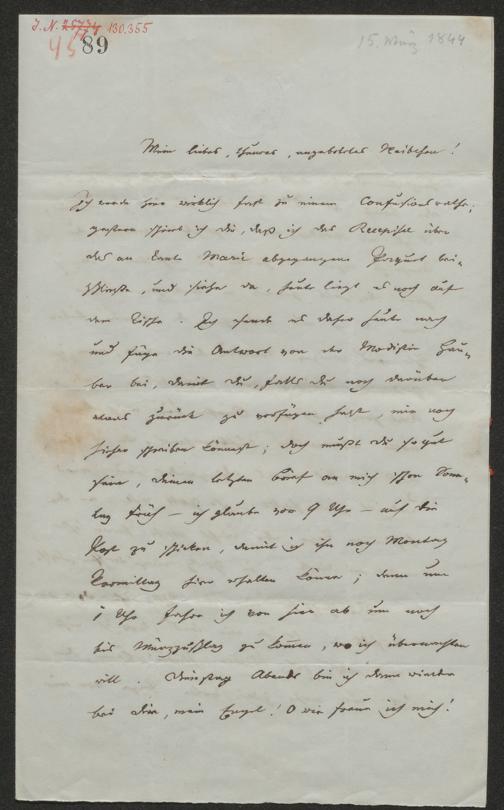 J. N. 130.355
45 89
15. März 1844
Mein liebes, theures, angebetetes Weibchen!
Ich werde hier wirklich fast zu einem Confusionsrathe;
gestern schrieb ich dir, daß ich das Recepisse über
das an Tante Marie abgegangene Paquet bei-
schließe, und siehe da, heute liegt es noch auf
dem Tische. Ich sende es daher heute nach
und füge die Antwort von der Modistin Hau-
ber bei, damit du, falls du noch darüber
etwas zurück zu verfügen hast, mir noch
hieher schreiben könntest; doch mußt du so gut
sein, deinen letzten Brief an mich schon Sonn-
tag früh – ich glaube vor 9 Uhr – auf die
Post zu schicken, damit ich ihn noch Montag
Vormittag hier erhalten könne; denn um
1 Uhr fahre ich von hier ab um noch
bis Mürzzuschlag zu kommen, wo ich übernachten
will. Dienstag Abends bin ich dann wieder
bei dir, mein Engel! O wie freue ich mich!